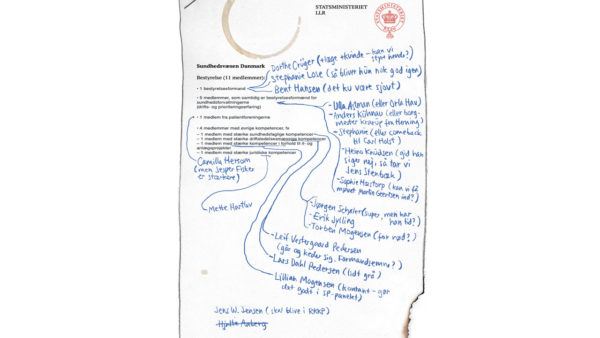 STATSMINISTERIET
LLR
STATSMINISTERIET
Sundhedsvæsen Danmark
Bestyrelse (11 medlemmer):
• 1 bestyrelsesformand
• 5 medlemmer, som samtidig er bestyrelsesformænd for
sundhedsforvaltningerne
(drifts- og prioriteringserfaring)
• 1 medlem fra patientforeningerne
• 4 medlemmer med øvrige kompetencer, fx
– 1 medlem med stærke sundhedsfaglige kompetencer
– 1 medlem med stærke kompetencer
– 1 medlem med stærke kompetencer i forhold til it- og
anlægsprojekter
– 1 medlem med stærke juridiske kompetencer
Dorthe Crüger (+læge +kvinde - kan vi
styre hende?)
Stephanie Lose (så bliver hun nok god igen)
Bent Hansen (det ku være sjovt)
Ulla Astman (eller Orla Hav)
Anders Kühnau (eller borg-
mester for Herning)
Stephanie (eller comeback
til Carl Holst)
Heino Knudsen (gid han
siger nej, så tar vi
Jens Stenbæk)
Sophie Hæstorp (kan vi få
Martin Geertsen ind?)
Camilla Hersom
(men Jesper Fisker
er stærkere)
Mette Hartlev
Jørgen Schøler (super, men har
han tid?)
Erik Jylling
Torben Mogensen (for rød?)
Leif Vestergaard Pedersen
(går og keder sig. Formandsemne?)
Lars Dahl Pedersen (lidt grå)
Lillian Mogensen (kontant - gør
det godt i SP-panelet)
Jens W. Jensen (skal blive i RKKP)
Hjalte Aaberg